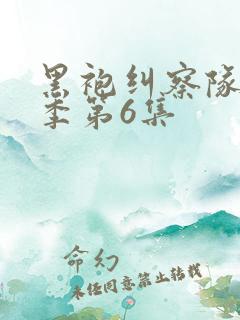 黑袍纠察队
季第6集
命幻
未经同意禁止转载